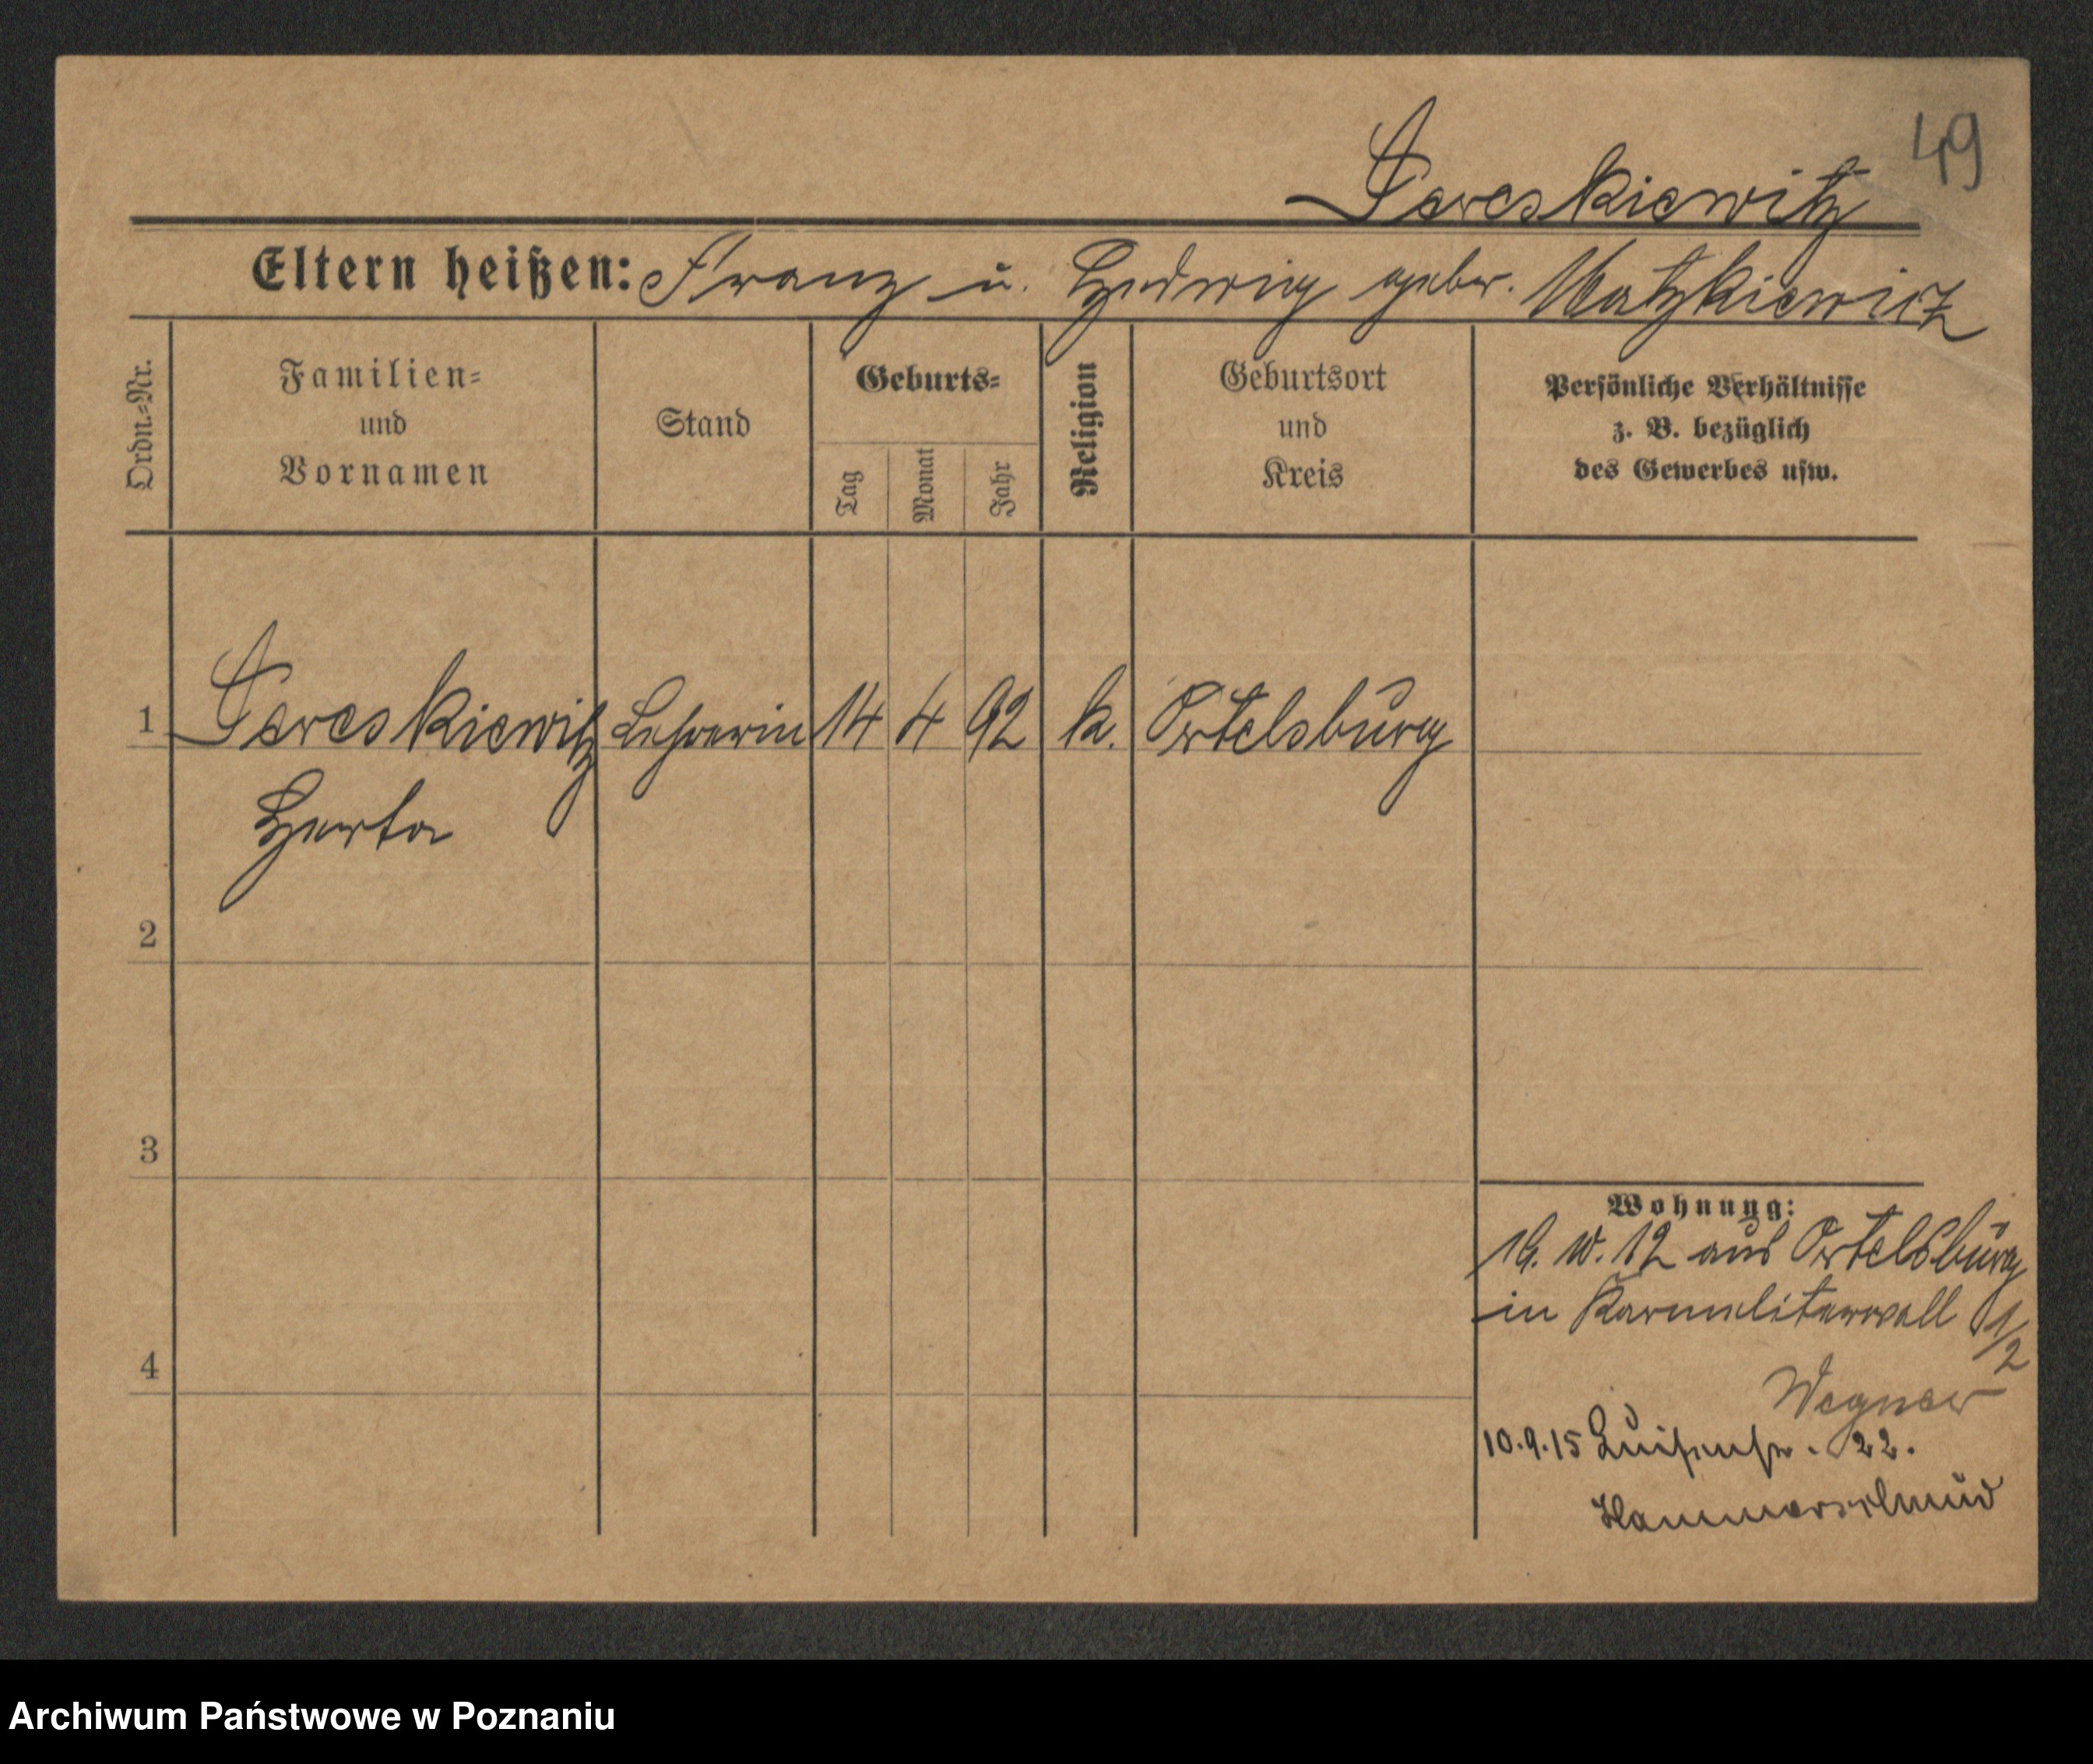 49
Sereskiewitz
Eltern heißen: Franz u. Hedwig geber. Matzkiewicz
Ordn.=Nr.
Familien=
und
Vornamen
Stand
Geburts=
Tag
Monat
Jahr
Religion
Geburtsort
und
Kreis
Persönliche Verhältnisse
z. B. bezüglich
des Gewerbes usw.
1 Sereskiewitz Lehrerin 14 4 92 k. Ortelsburg
Herta
2
3
4
Wohnung:
12 aus Ortelsburg
in Karmeliterwall 1/2
Wegner
10.9.15 Luisenstr. 22.
Hammerschmid